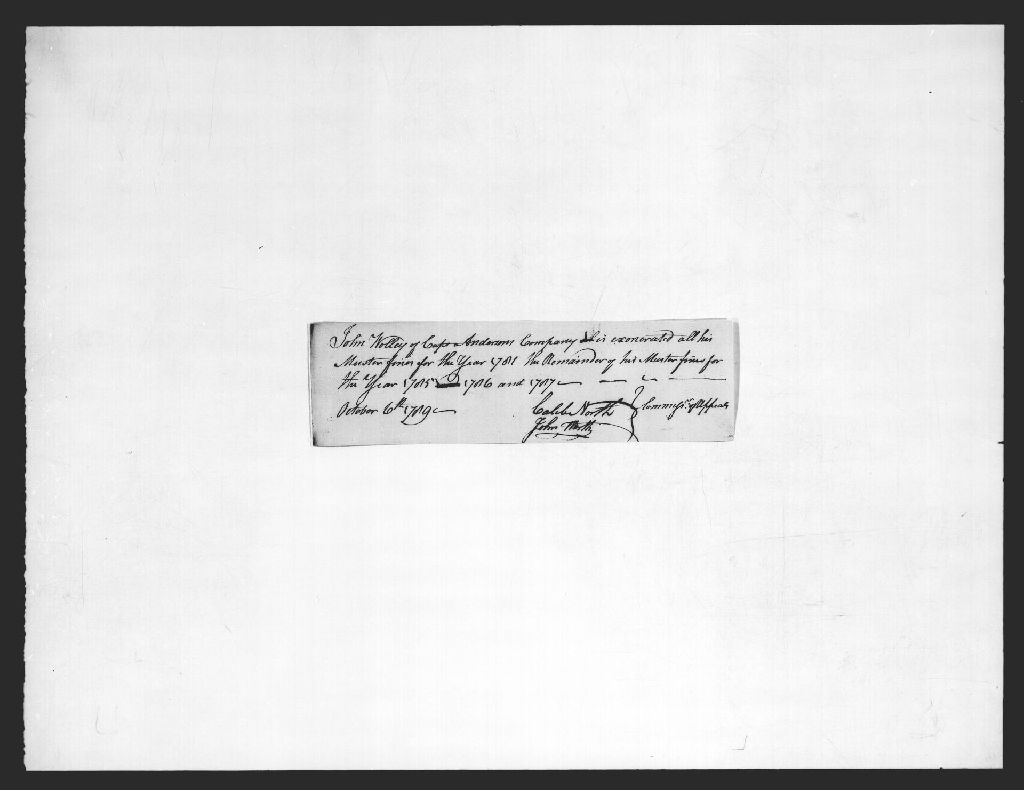 John Wolley of Capt Andersons Company is exonerated all his
Muster fines for the Year 1781 the Remainder of his Muster fines for
the Year 1785 1786 and 1787
October 6th 1789 Caleb North } Commissrs of Appeals
John North